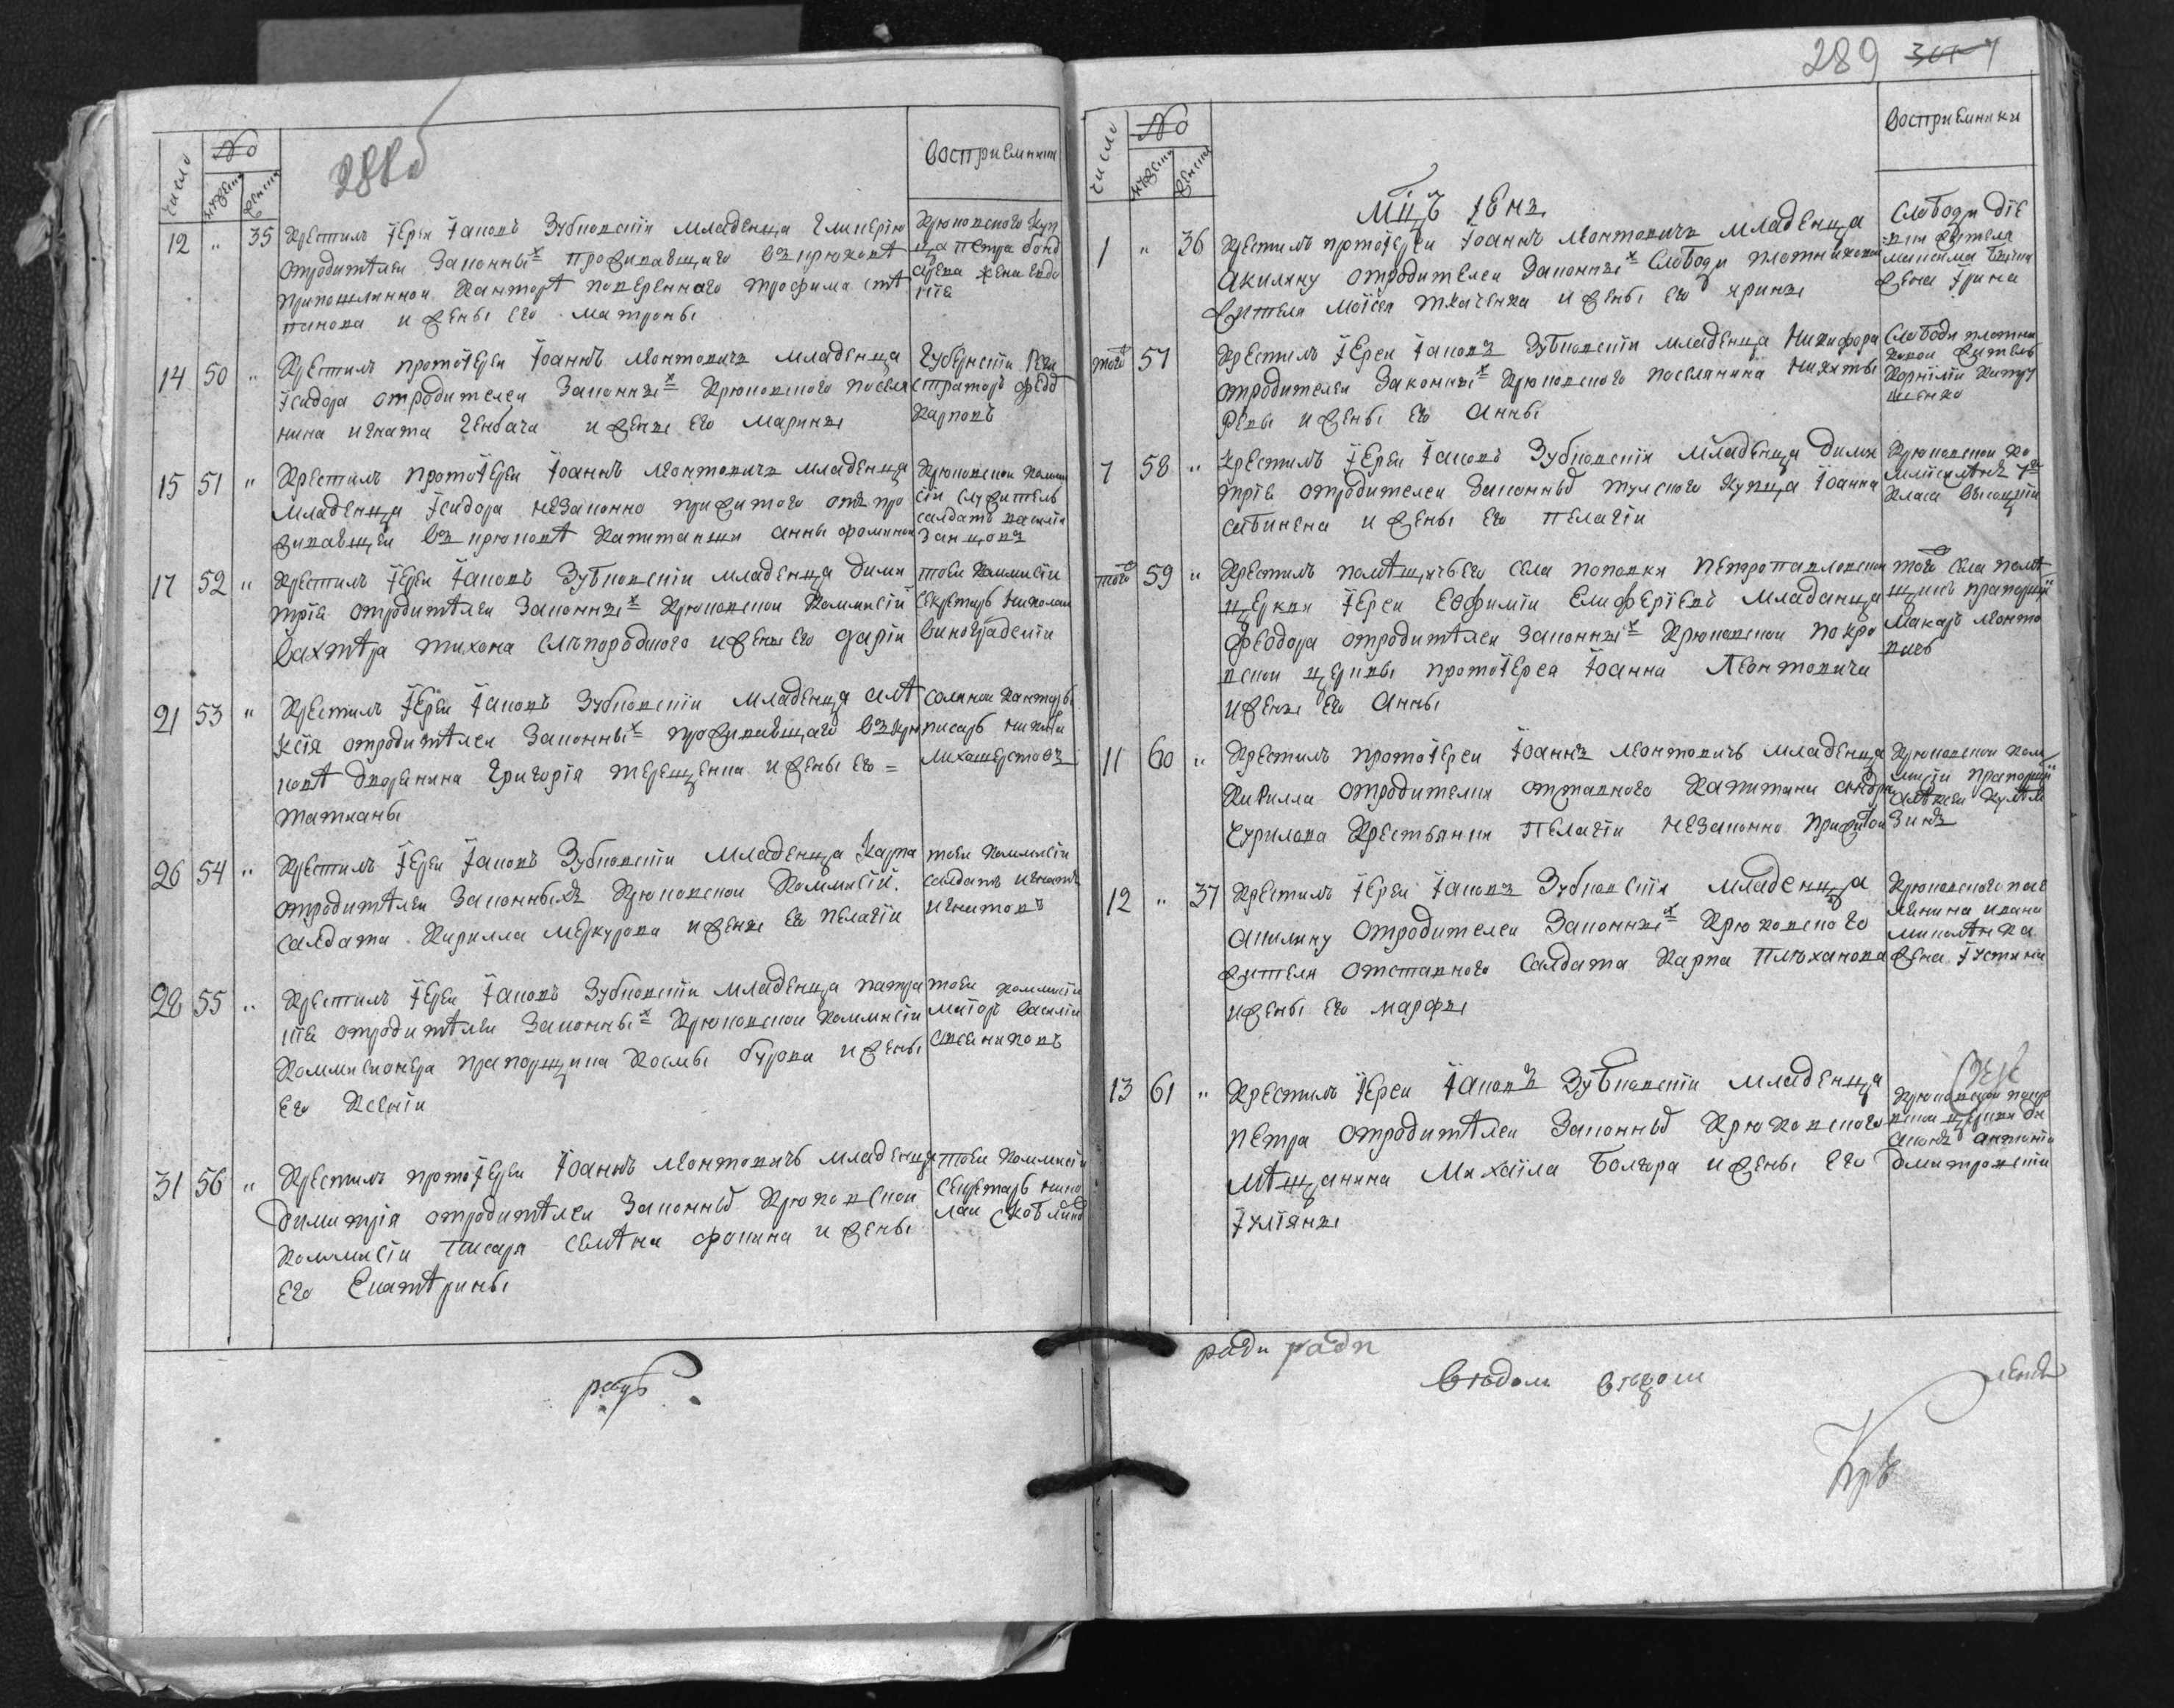 288об
число
№
мужеска
женска
восприемники
12 " 35 Крестилъ Іереи Іаковъ Зубковскіи младенца Гликерію
отродителеи Законны х проживающаго въ крюковѣ
при Канторѣ повереннаго трофима стѣ
панова и жены его матроны
Крюковского куп
ца петра
жена евдо
кіа
14 50 " Крестилъ протоіереи Іоаннъ Леонтовичъ младенца
Ісидора отродителеи Законных Крюковского поселя
нина игната Генбача и жены его марины
Губернскіи реги
страторъ федо
Карповъ
15 51 " Крестилъ протоіереи Іоаннъ Леонтовичъ младенца
младенца Ісидора незаконно прижитого отъ про
живающеи въ крюковѣ Капитанши анны фоминои
Крюковскои комми
сіи служитель
салдатъ василіи
17 52 " Крестилъ Іереи Іаковъ Зубковскіи младенца дими
тріа отродителеи Законных Крюковскои Коммисіи
вахтѣра тихона Слѣпородного и жены его даріи
тоеи Коммисіи
Секретарь николаи
виноградскіи
21 53 " Крестилъ Іереи Іаковъ Зубковскіи младенца алѣ
ксія отродителеи Законны х проживающаго въ крю
ковѣ дворянина Григорія терещенка и жены его =
татианы
солянои канторы
писарь никита
Лихошерстовъ
26 54 " Крестилъ Іереи Іаковъ Зубковскіи младенца Карпа
отродителеи Законныхъ Крюковскои Коммисіи
салдата Кирилла меркурова и жены его пелагіи
тоеи Коммисіи
салдатъ игнатъ
игнатовъ
28 55 " Крестилъ Іереи Іаковъ Зубковскіи младенца патри
кіа отродителеи Законны х Крюковскои Коммисіи
Коммисионера прапорщика Космы бурова и жены
его Ксеніи
тоеи коммисіи
маіоръ василіи
31 56 " Крестилъ протоіереи Іоаннъ Леонтовичъ младенца
Димитрія отродителеи Законных Крюковскои
Коммисіи писаря Семѣна фокина и жены
его Екатѣрины
тоеи Коммисіи
секретарь нико
лаи
289
число
№
мужеска
женска
Восприемники
Мцъ Іюнъ
1 " 36 Крестилъ протоіереи Іоаннъ Леонтовичъ младенца
Акилину отродителеи Законных Слободы плотниковои
жителя Моісея ткаченка и жены его ярины
Слободы
жителя
максима
жена Ірина
того 57 Крестилъ Іереи Іаковъ Зубковскіи младенца Никифора
отродителеи Законных Крюковского поселянина никиты
ревы и жены его анны
Слободы плотни
ковои житель
Корнилій
шенко
7 58 " Крестилъ Іереи Іаковъ Зубковскіи младенца дими
тріа отродителеи Законных тулского Купца Іоанна
сабинена и жены его пелагіи
Крюковскои Ко
класа
того 59 " Крестилъ помѣщичьего села поповки петропавловскои
церкви Іереи Евфиміи Елиферіевъ младанца
феодора отродителеи Законных Крюковскои покро
вскои церквы протоіерея Іоанна Леонтовича
и жены его анны
того села помѣ
щикъ прапорщи
макаръ Леонто
вичъ
11 60 " Крестилъ протоіереи Іоаннъ Леонтовичъ младенца
Кирилла отродителия отставного Капитана андрея
чурилова Крестьянки Пелагіи незаконно прижитои
Крюковскои Ком
мисіи прапорщи
алѣксеи
12 " 37 Крестилъ Іереи Іаковъ Зубковскіи младенца
акилину отродителеи Законных Крюковского
жителя отставного салдата Карпа Плѣханова
и жены его марфы
Крюковского посе
лянина ивана
жена Іустина
13 61 " Крестилъ Іереи Іаковъ Зубковскіи младенца
петра отродителеи Законных Крюковского
мѣщанина михаіла Болгора и жены его
Іуліяны
Крюковскои покр
вскои церкви ди
аконъ антоніи
дмитровскіи
ради ради